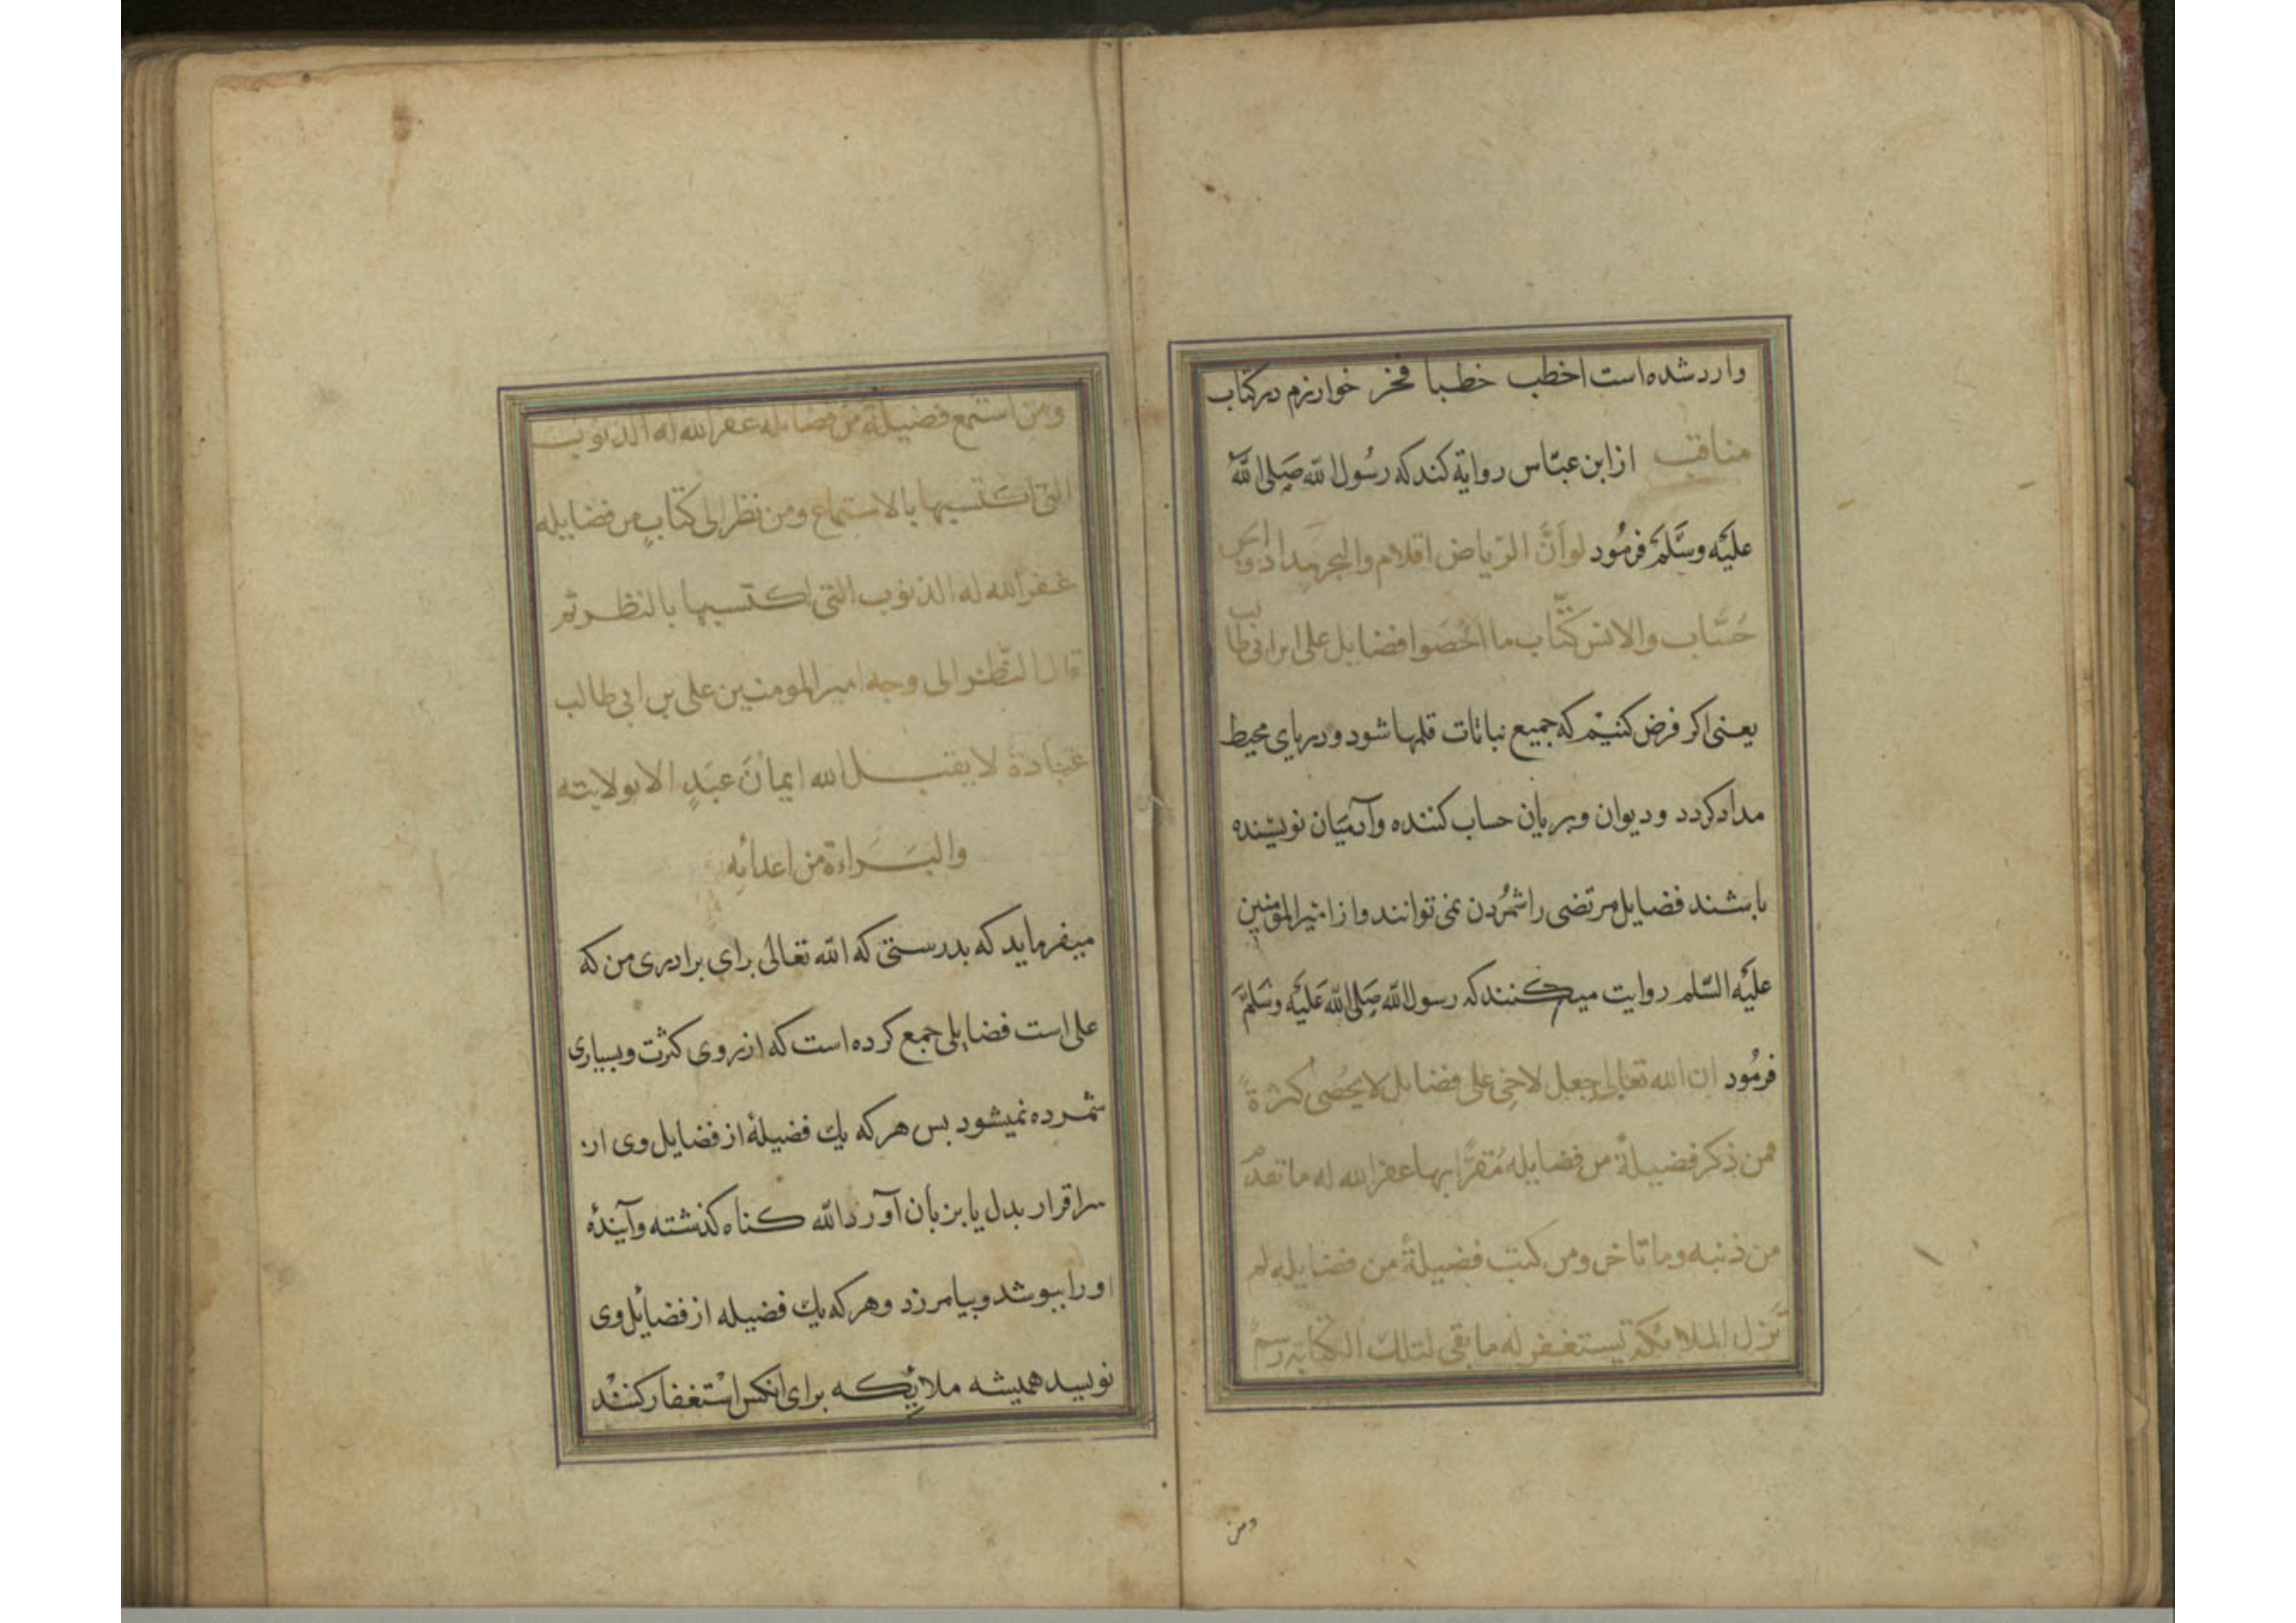 وارد شده است اخطب خطبا فخر خوارزم در كتاب
مناقب از ابن عبّاس رواية كند كه رسُول الله صَلى اللهُ
عليَه وسَّلمَ فرمُود لو اَنَّ الرّياض اقلام والبحر مِداد
حُسَّاب والانس كتَّاب ما احْصَوا فضايل على ابن ابى طالب
يعنى اكر فرض كنيْم كه جميع نباتات قلمها شود ودرياى محيط
مداد كردد وديوان وپريان حساب كننده وآدميَان نويسْنده
باشند فضايل مرتضى را شمُردن نمى توانند واز اميرالمؤمنين
عليَه السّلم روايت ميكنند كه رسول الله صَلى الله عَليَه وسَلمَّ
فرمُود ان الله تعالى جعل لاخى على فضايل لا يحُصى كثرةً
فمن ذكر فضيلة من فضايله مُقرًّا بها غفر الله له ما تقدم
من ذنبه وما تاخر ومن كتب فضيلةً من فضايله لم
تزل الملائكة يستغفر له ما بقى لتلك الكتابه رسم
ومن
ومن استمع فضيلةً من فضايله غفر الله له الذنوب
التى اكتسبها بالاستماع ومن نظر الى كتابٍ من فضايله
غفر الله له الذنوب التى اكتسبها بالنظر ثم
قال النّظر الى وجه امير المومنين على بن ابى طالب
عبَادة لا يقبل الله ايمانَ عبَدٍ الا بولايته
والبَرَاءة من اعدائِه
ميفرمايد كه بدرستى كه الله تعالى براى برادرى من كه
على است فضايلى جمع كرده است كه از روى كثرت وبسيارى
شمرده نميشود بس هركه يك فضيلهٔ از فضايل وى از
سر اقرار بدل يا بزبان آورد الله كناه كذشته وآيندهٔ
او را ببوشد وبيامرزد وهركه يك فضيله از فضائل وى
نويسد هميشه ملائِكه براى انكس استغفار كننْد